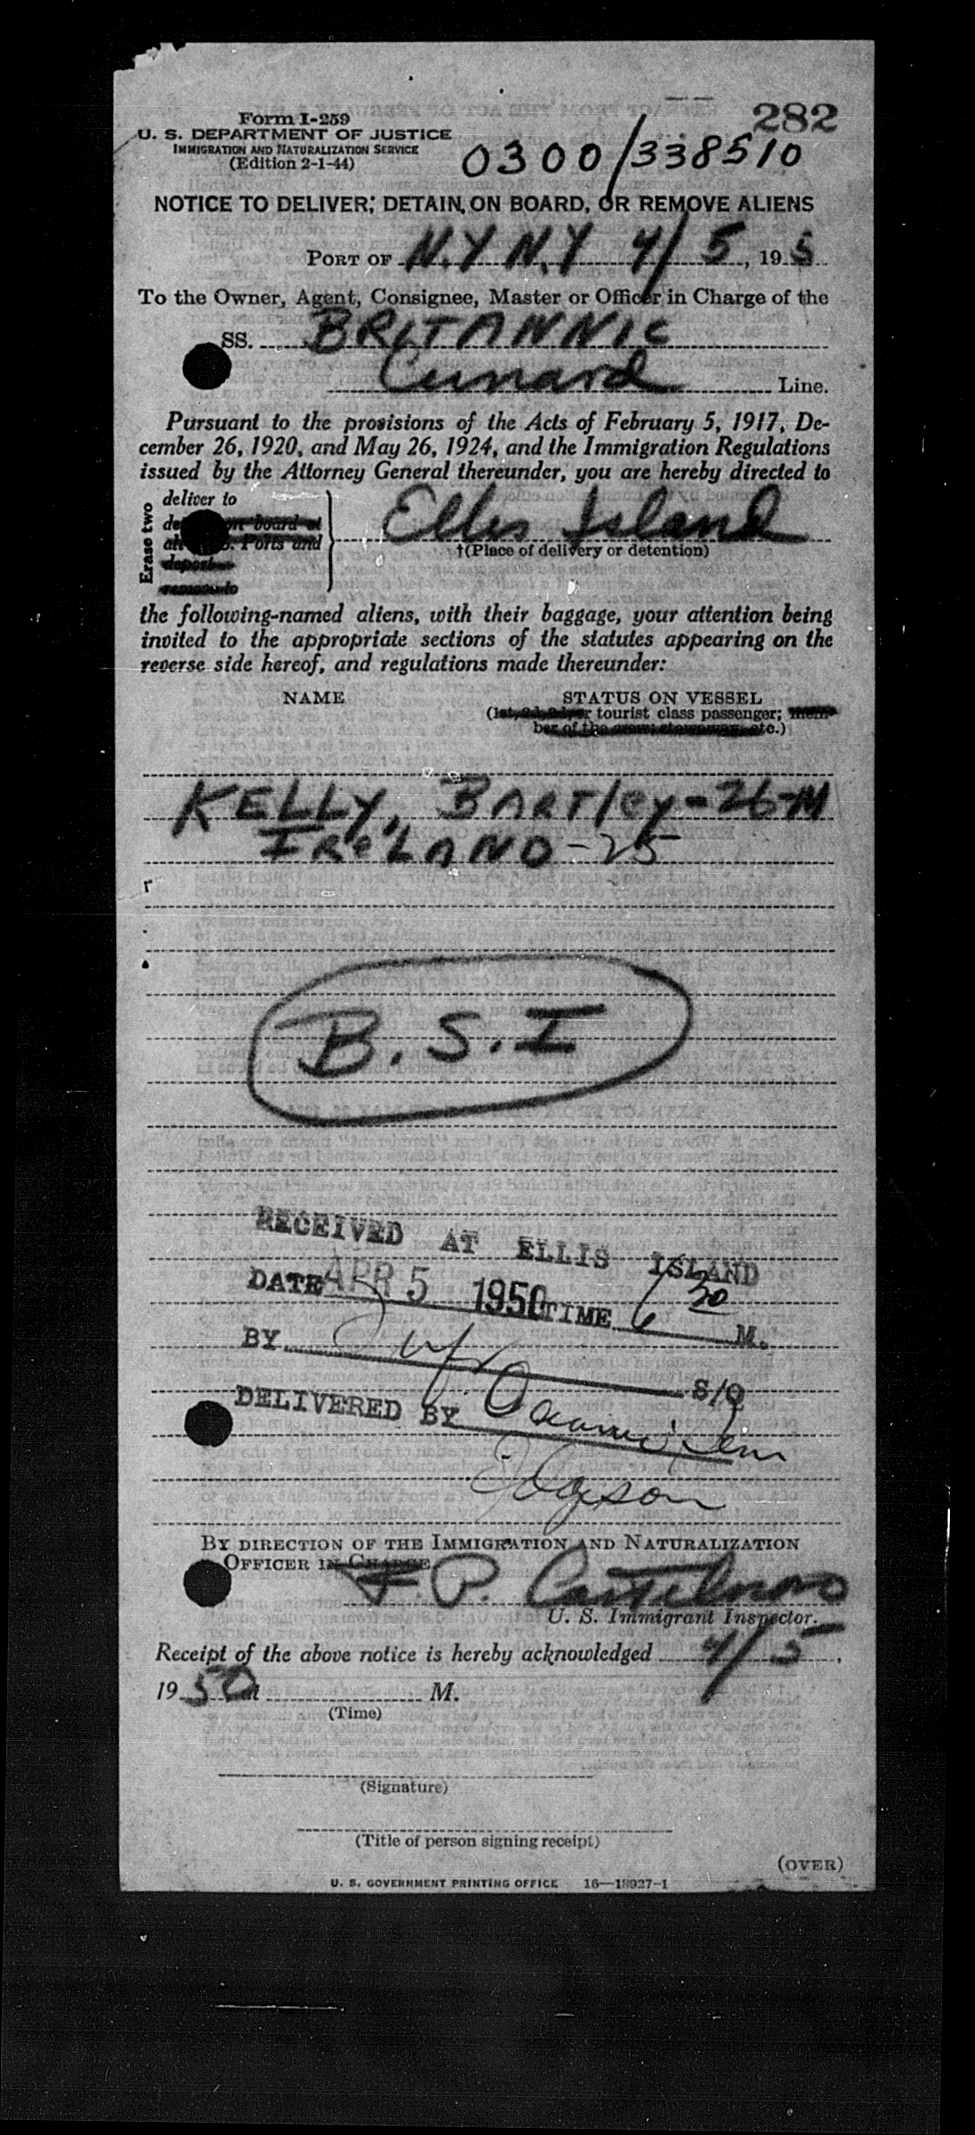 282
Form I-259
U. S. DEPARTMENT OF JUSTICE
IMMIGRATION AND NATURALIZATION SERVICE
(Edition 2-1-44)
0300/338510
NOTICE TO DELIVER, DETAIN ON BOARD, OR REMOVE ALIENS
PORT OF N.Y N.Y 4/5, 195
To the Owner, Agent, Consignee, Master or Officer in Charge of the
SS. BRITANNIC
Cunard Line.
Pursuant to the provisions of the Acts of February 5, 1917, De-
cember 26, 1920, and May 26, 1924, and the Immigration Regulations
issued by the Attorney General thereunder, you are hereby directed to
Erase two
deliver to
on board at
Ports and
deport
remove to
Ellis Island
†(Place of delivery or detention)
the following-named aliens, with their baggage, your attention being
invited to the appropriate sections of the statutes appearing on the
reverse side hereof, and regulations made thereunder:
NAME STATUS ON VESSEL
(1st, 2d, 3d, or tourist class passenger; mem-
ber of the crew; stowaway, etc.)
KELLY, BARTley-26-M
IReLAND-25
B.S.I
RECEIVED AT ELLIS ISLAND
DATE APR 5 1950 TIME 6 30 M.
BY S/O
DELIVERED BY
BY DIRECTION OF THE IMMIGRATION AND NATURALIZATION
OFFICER IN CHARGE
P.
U. S. Immigrant Inspector.
Receipt of the above notice is hereby acknowledged 4/5,
1950 at M.
(Time)
(Signature)
(Title of person signing receipt)
(OVER)
U. S. GOVERNMENT PRINTING OFFICE 16—18927-1